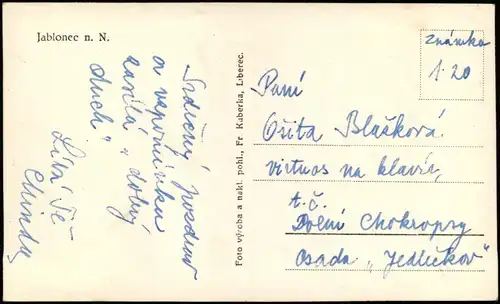 Jablonec n. N.
Srdečný pozdrav
a vzpomínku
zasílá „dobrý
duch“
Líbá Tě
Foto výroba a nakl. pohl., Fr. Kaberka, Liberec.
známka
1.20
Paní
Ošita Blašková
virtuos na klavír,
t. č.
Dolní Chokropsy
Osada „Jedličkov“